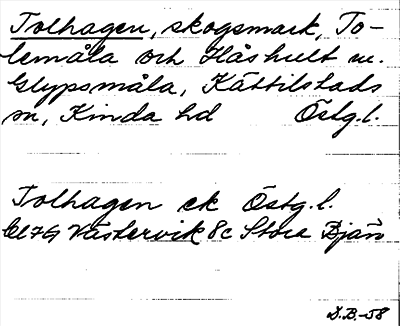 Tolhagen, skogsmark, To-
lemåla och Håshult m.
Glypsmåla, Kättilstads
sn, Kinda hd Östg.l.
Tolhagen ek Östg.l.
Västervik 8c Stora Bjän
D.B.-58